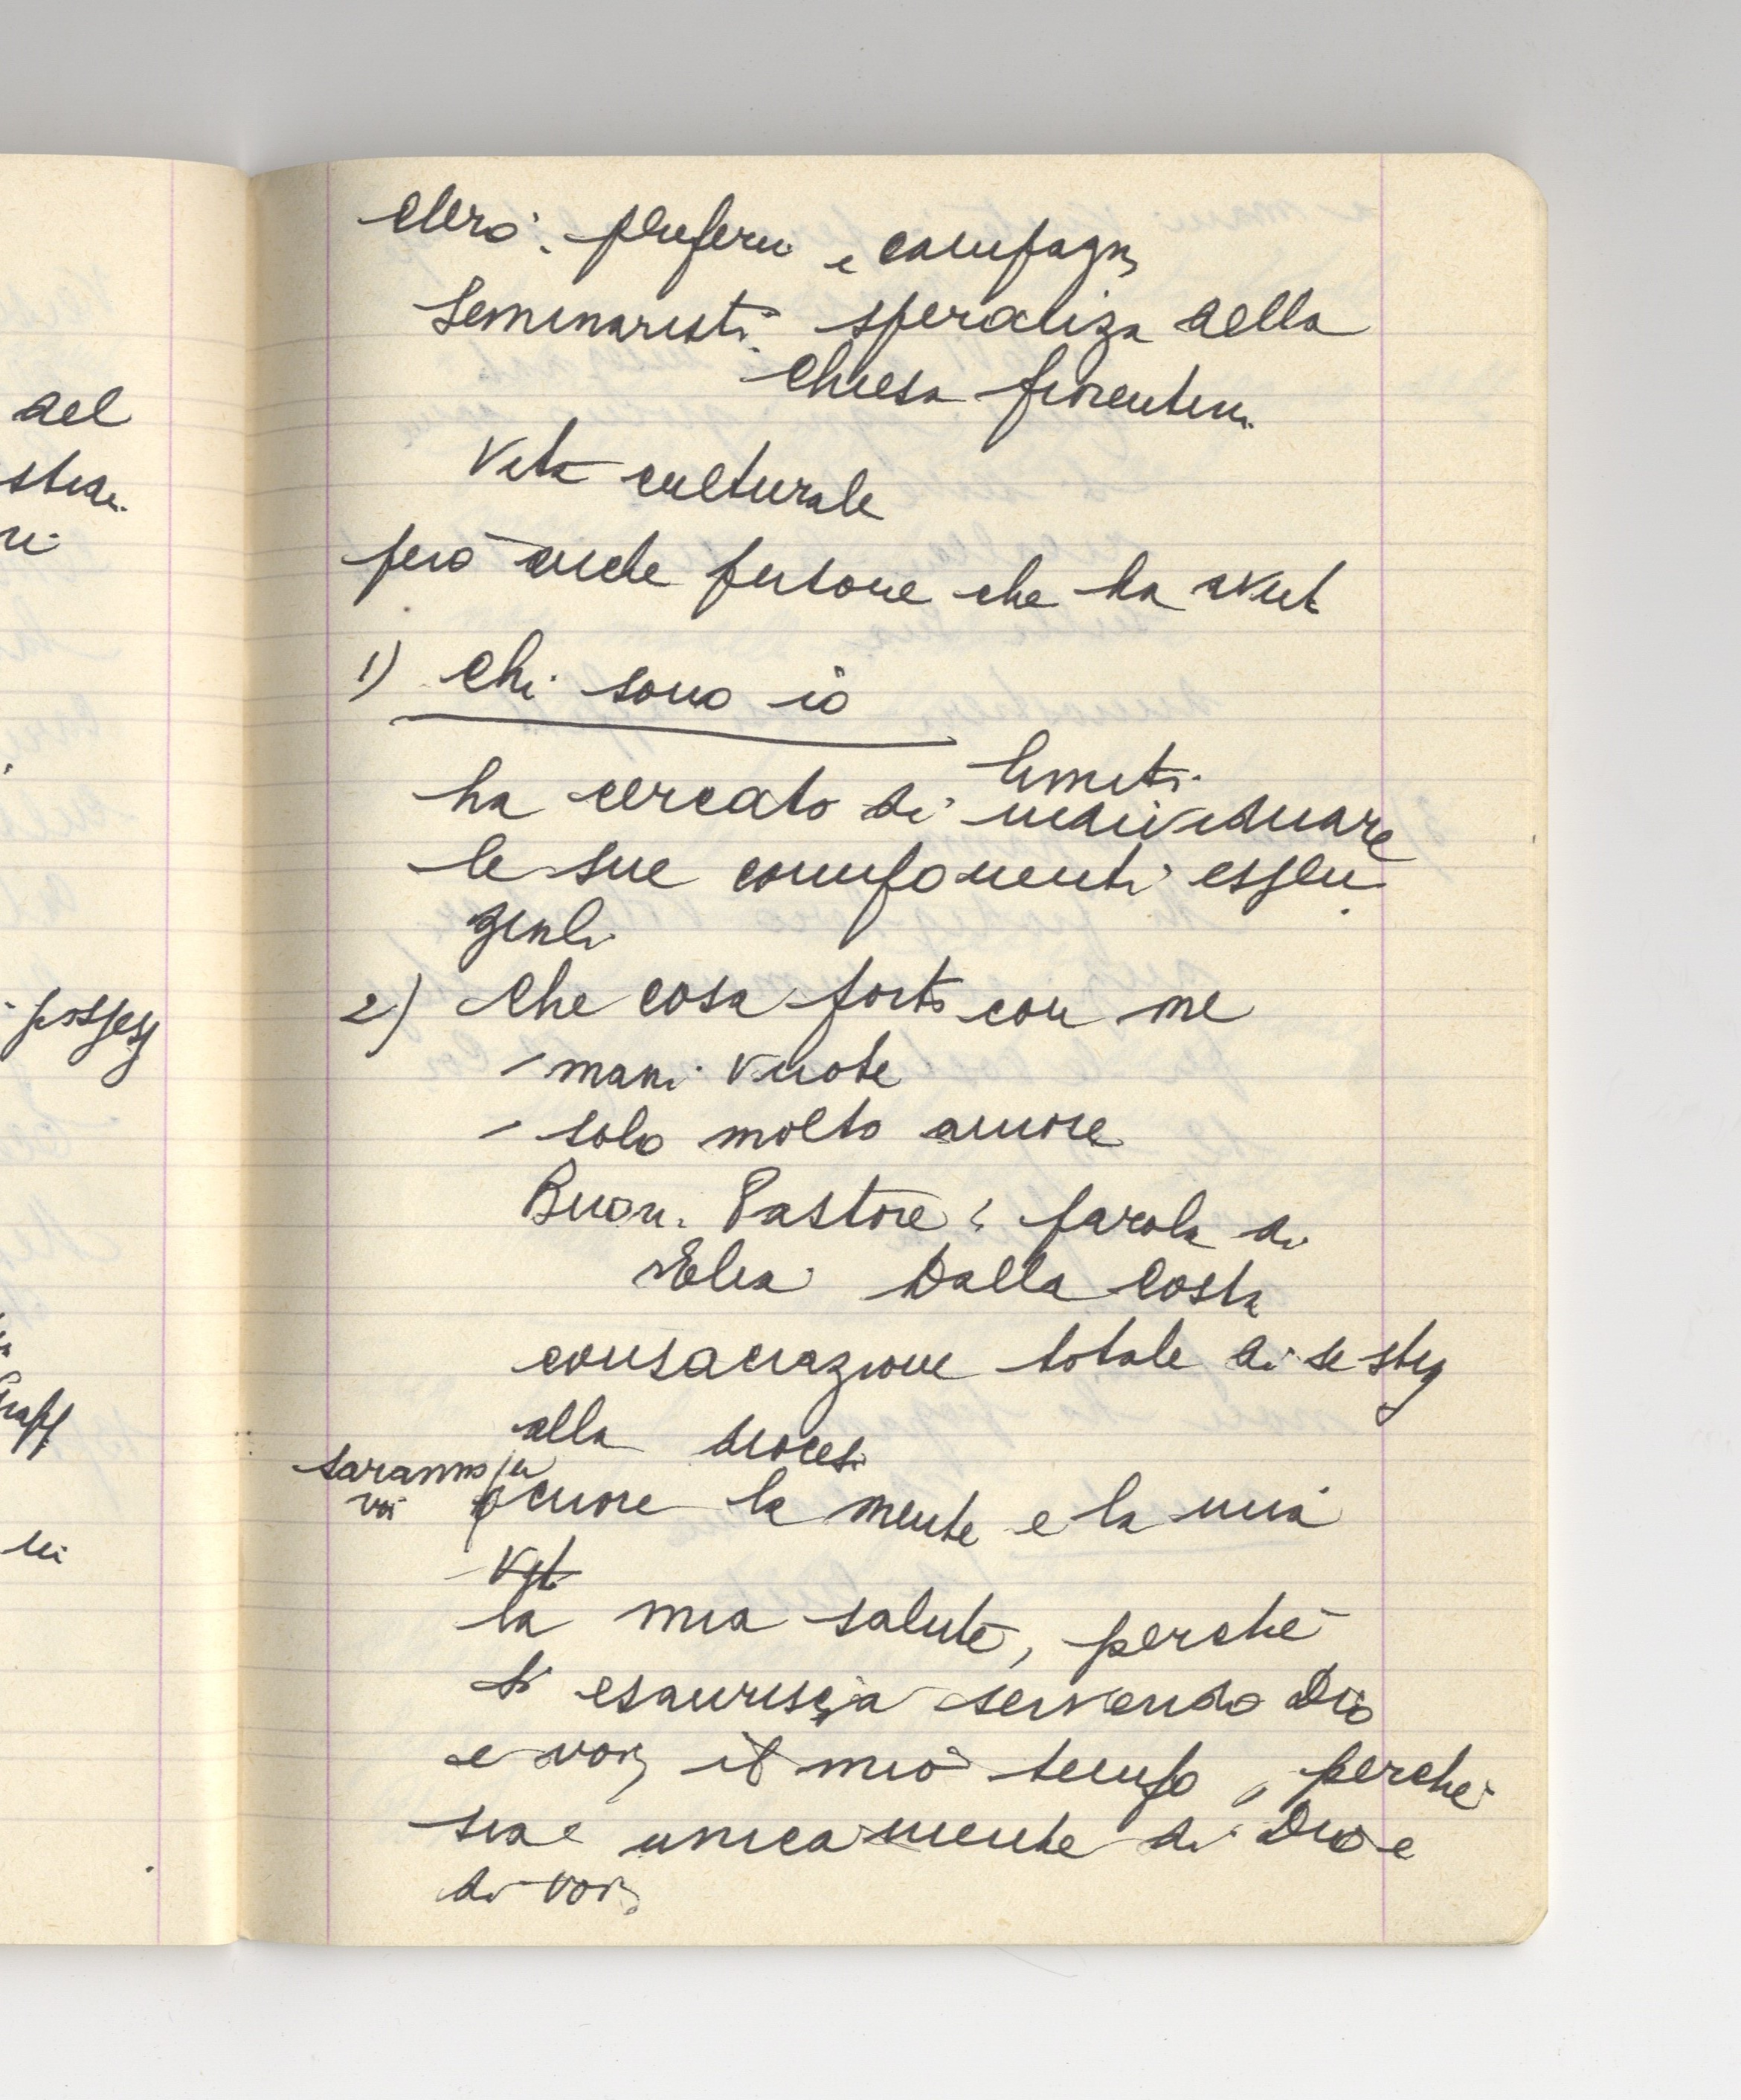 del
clero: periferia e campagn
Seminaristi: speranza della
Chiesa fiorentin
Vita culturale
però anche persone che ha avut
1) Chi sono io
limiti
ha cercato di individuare
le sue componenti essen
ziali
2) Che cosa porto con me
- mani vuote
- solo molto amore
Buon Pastore: parola di
Elia Dalla Costa
consacrazione totale di se stes
alla diocesi
saranno per
voi
cuore la mente e la mia
vit
la mia salute, perché
si esaurisca servendo Dio
e voi, il mio tempo, perché
sia unicamente di Dio e
di voi,